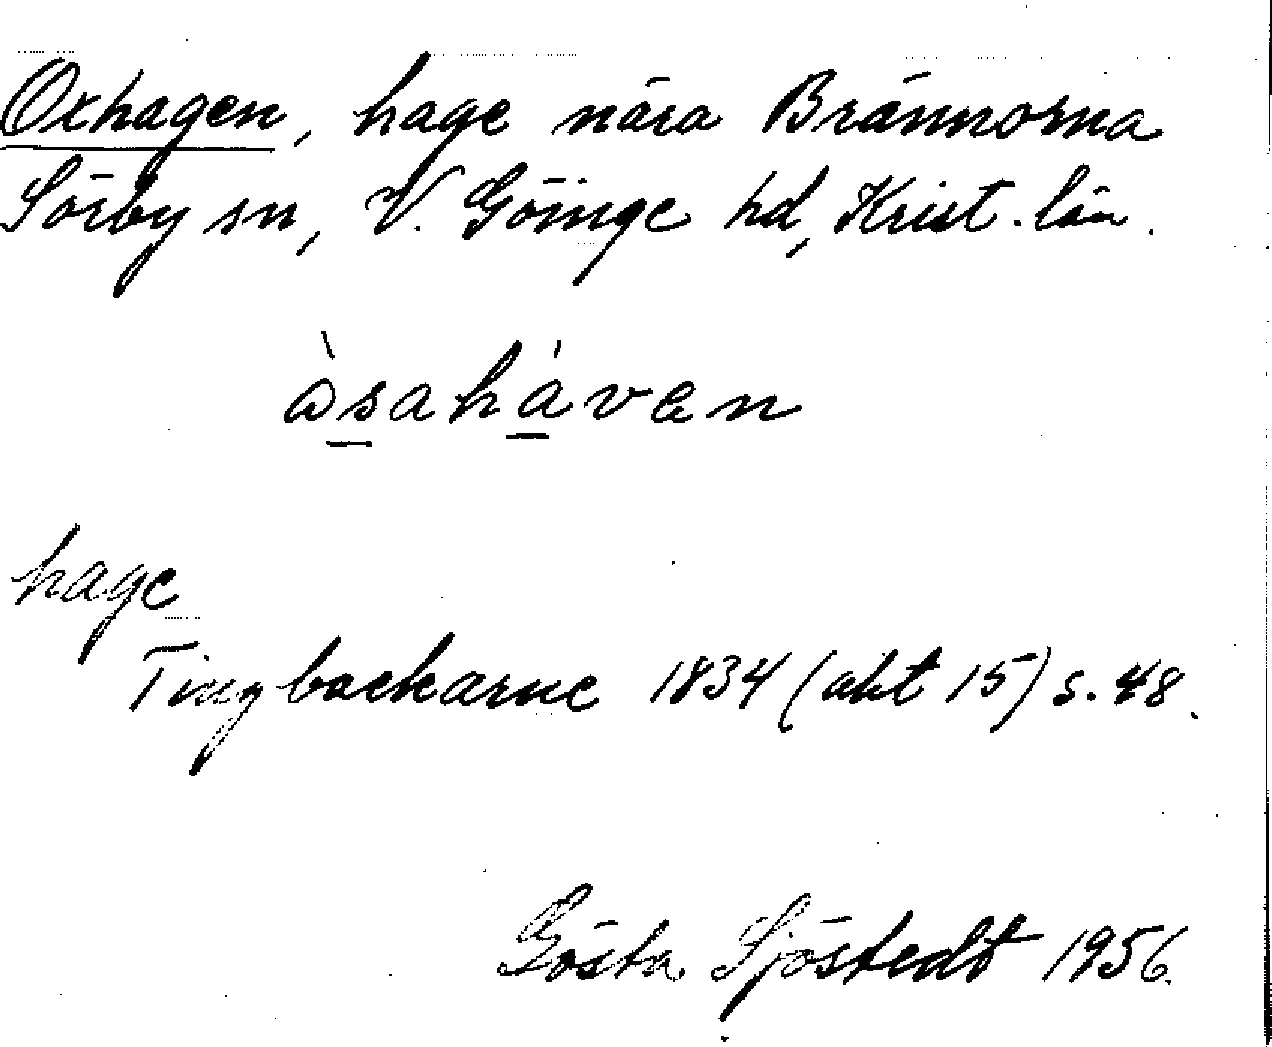 Oxhagen, hage nära Brännorna
Sörby sn, V. Göinge hd, Krist. län.
àsaháven
hage
Tingbackarne 1834 (akt 15) s. 48.
Gösta Sjöstedt 1956.